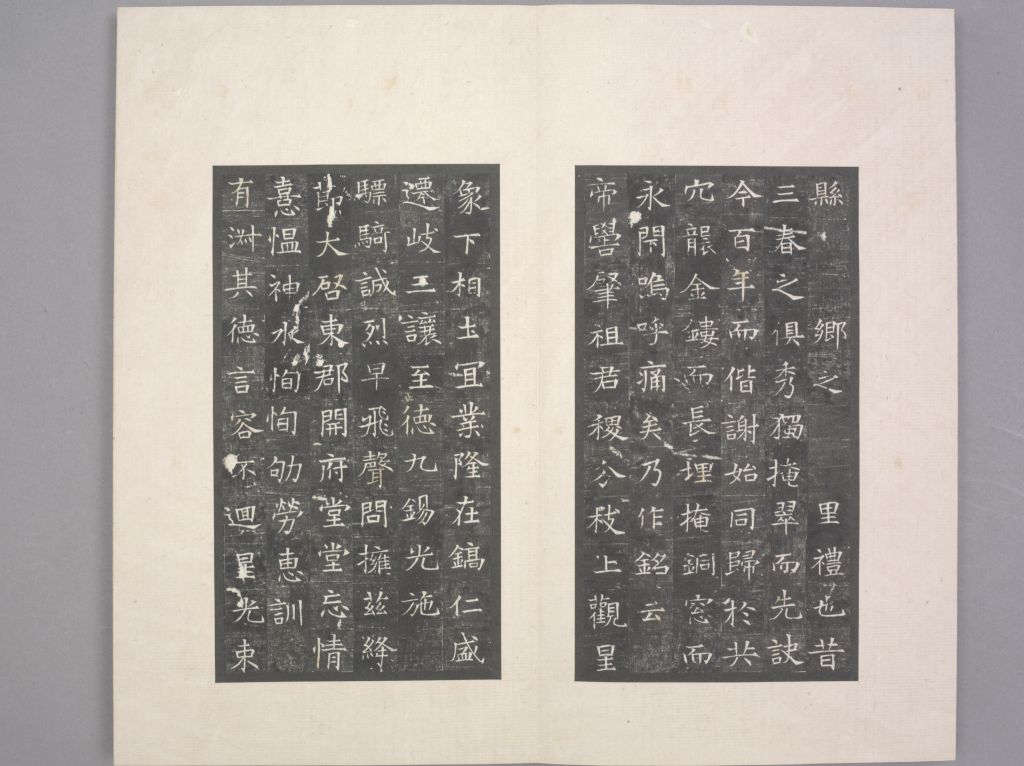 縣 鄉之 里禮也昔
三春之俱秀獨掩翠而先訣
今百年而偕謝始同歸於共
穴襲金鏤而長埋掩銅窓而
永閇嗚呼痛矣乃作銘云
帝嚳肇祖君稷分枝上觀星
象下相土冝業隆在鎬仁盛
遷岐三讓至德九錫光施
驃騎誠烈早飛聲問擁茲絳
節大啓東郡開府堂堂忘情
憙慍神水恂恂劬勞惠訓
有淑其德言容不迴星光東